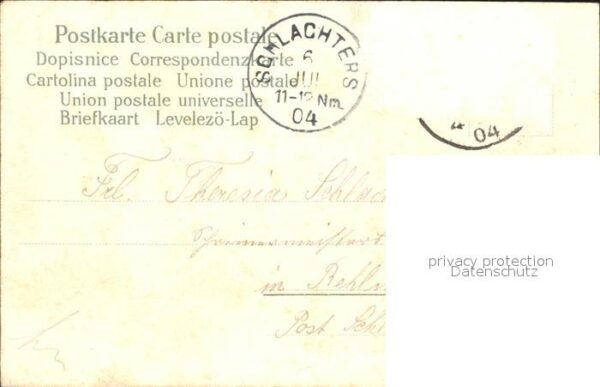 Postkarte Carte postale
Dopisnice Correspondenzkarte
Cartolina postale Unione postale
Union postale universelle
Briefkaart Levelezö-Lap
SCHLACHTERS
6
JUL
11-12 Nm.
04
04
Frl. Theresia Schlac
in Rehl
Post Sch
privacy protection
Datenschutz